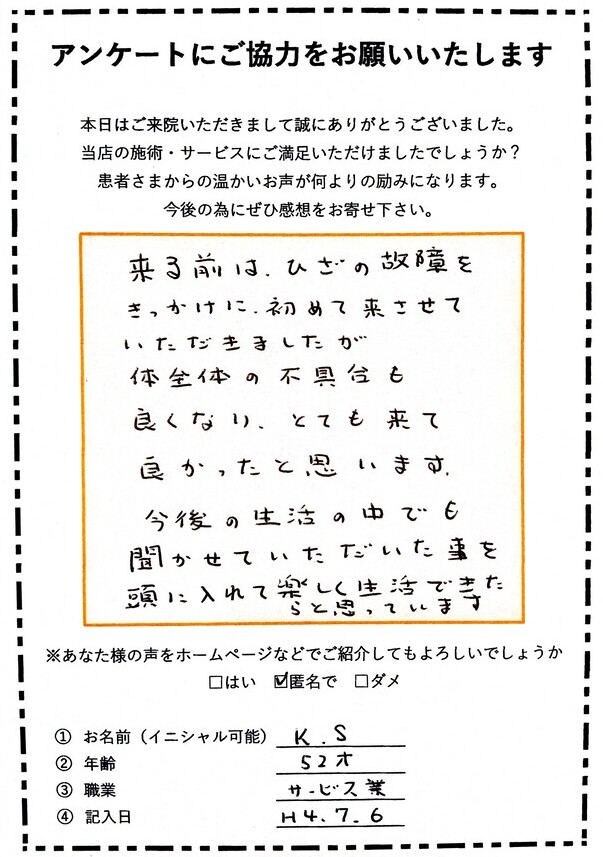 アンケートにご協力をお願いいたします
本日はご来院いただきまして誠にありがとうございました。
当店の施術・サービスにご満足いただけましたでしょうか？
患者さまからの温かいお声が何よりの励みになります。
今後の為にぜひ感想をお寄せ下さい。
来る前は、ひざの故障を
きっかけに、初めて来させて
いただきましたが
体全体の不具合も
良くなり、とても来て
良かったと思います。
今後の生活の中でも
聞かせていただいた事を
頭に入れて楽しく生活できた
らと思っています
※あなた様の声をホームページなどでご紹介してもよろしいでしょうか
□はい ☑匿名で □ダメ
① お名前（イニシャル可能） K.S
② 年齢 52才
③ 職業 サービス業
④ 記入日 H4.7.6